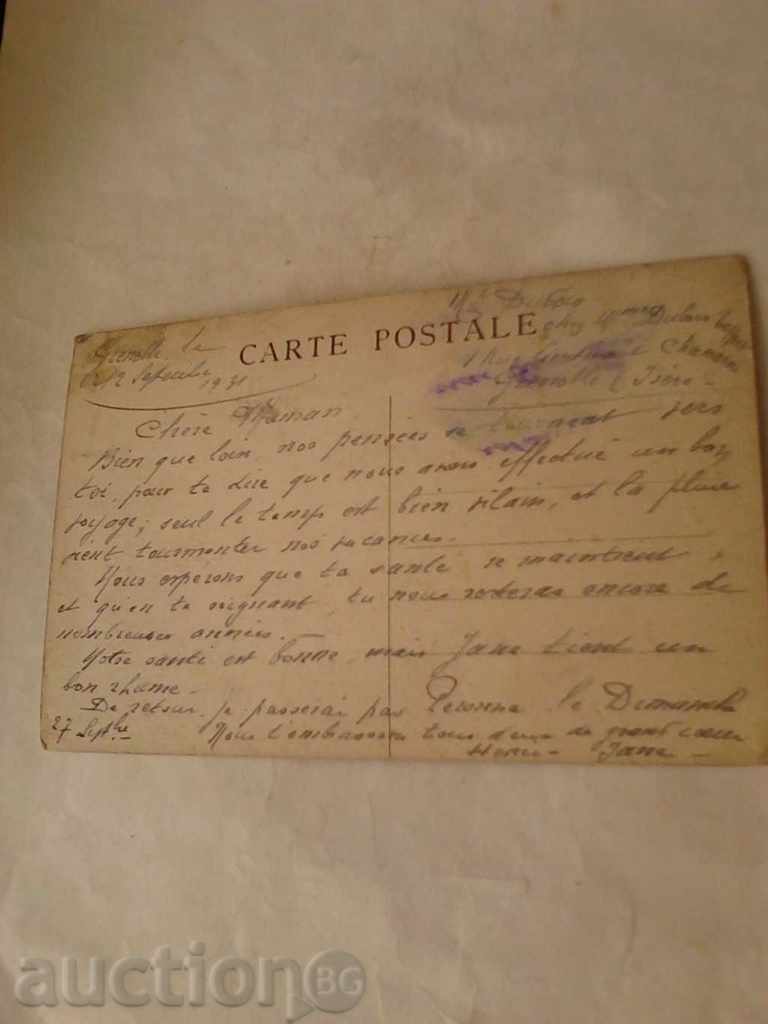 CARTE POSTALE
Grenoble, le
12 Septembre 1931
Mr Dubois
chez Mme
1 Rue
Grenoble (Isère)
Chère Maman
Bien que loin, nos pensées se tournent vers
toi, pour te dire que nous avons effectué un bon
voyage; seul le temps est bien vilain, et la pluie
vient tourmenter nos vacances.
Nous espérons que ta santé se maintient,
et qu'en te soignant, tu nous resteras encore de
nombreuses années.
Notre santé est bonne, mais Jane tient un
bon rhume.
De retour, je passerai par Peronne le Dimanche
27 Septbre Nous t'embrassons tous deux de grand cœur
Henri - Jane -
auctionBG